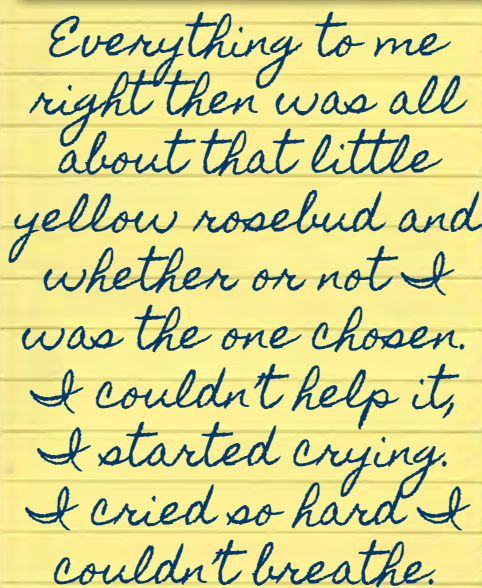 Everything to me
right then was all
about that little
yellow rosebud and
whether or not I
was the one chosen.
I couldn't help it,
I started crying.
I cried so hard I
couldn't breathe.